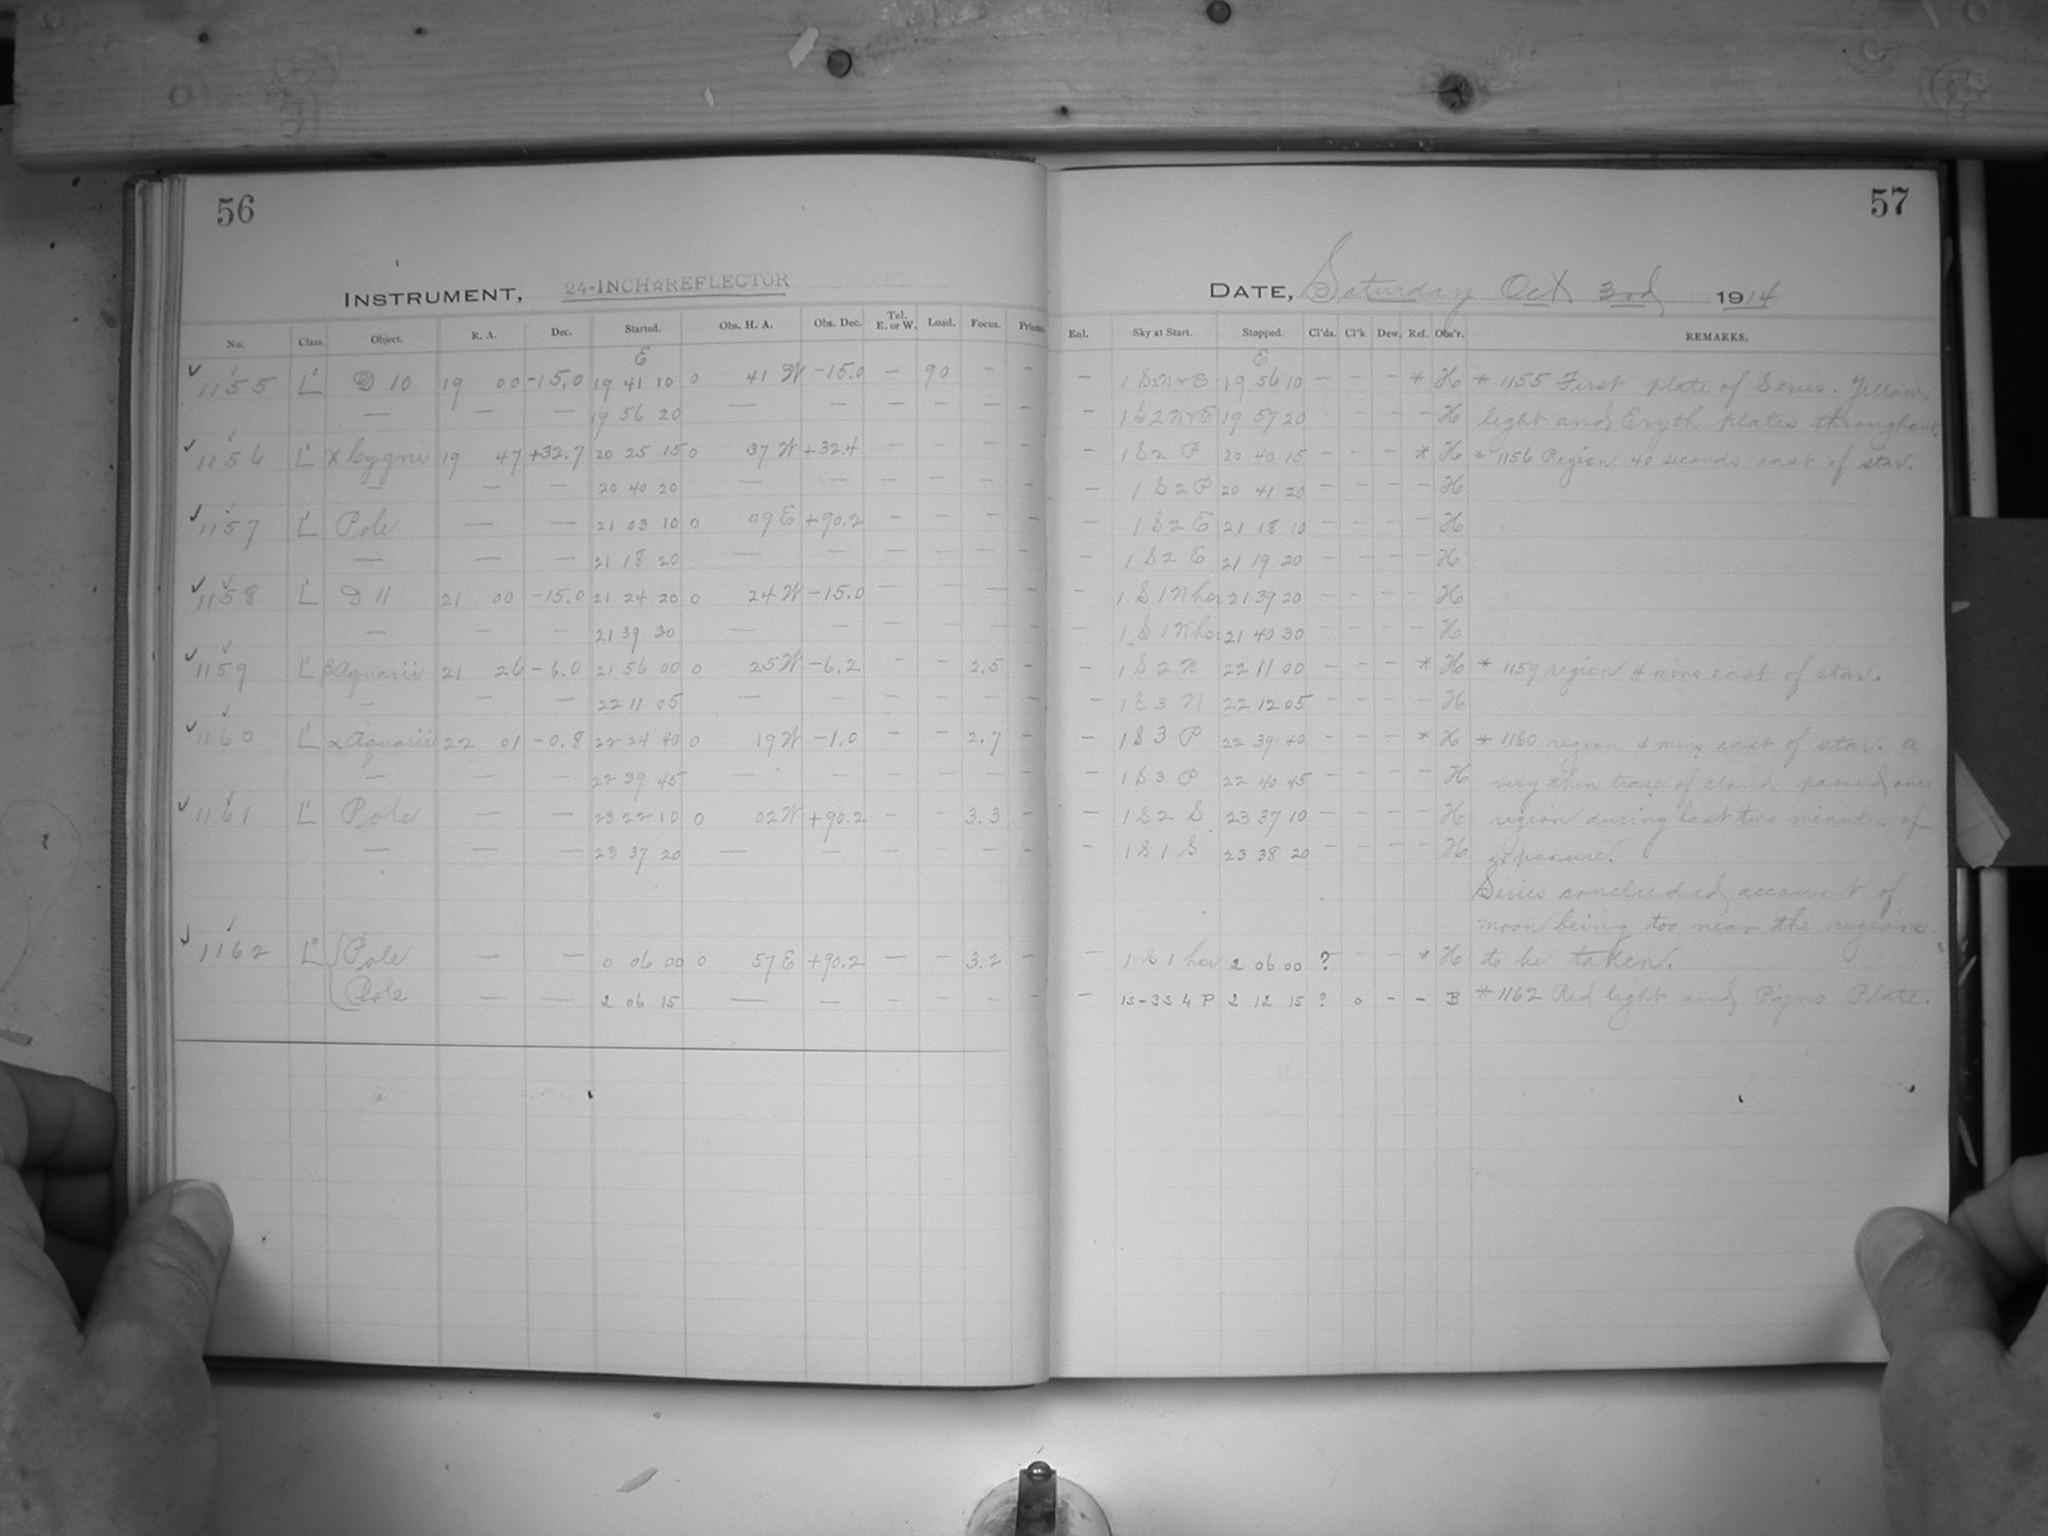 56
INSTRUMENT, 24-INCH☆REFLECTOR
No. Class. Object. R. A. Dec. Started. Obs. H. A. Obs. Dec. Tel. E. or W. Load. Focus. Prisms.
E
1155 L' D 10 19 00 -15.0 19 41 10 0 41 W -15.0 — 90 — —
— — — 19 56 20 — — — — — —
1156 L' χ Cygni 19 47 +32.7 20 25 15 0 37 W +32.4 — — — —
— — — 20 40 20 — — — — — —
1157 L' Pole — — 21 03 10 0 09 E +90.2 — — — —
— — — 21 18 20 — — — — — —
1158 L' D 11 21 00 -15.0 21 24 20 0 24 W -15.0 — — —
— — — 21 39 30 — — — — — —
1159 L' β Aquarii 21 26 -6.0 21 56 00 0 25 W -6.2 — — 2.5 —
— — — 22 11 05 — — — — — —
1160 L' α Aquarii 22 01 -0.8 22 24 40 0 19 W -1.0 — — 2.7 —
— — — 22 39 45 — — — — — —
1161 L' Pole — — 23 22 10 0 02 W +90.2 — — 3.3 —
— — — 23 37 20 — — — — — —
1162 L' Pole — — 0 06 00 0 57 E +90.2 — — 3.2 —
Pole — — 2 06 15 — — — — — —
57
DATE, Saturday Oct 3rd 1914
Enl. Sky at Start. Stopped. Cl'ds. Cl'k Dew, Ref. Obs'r. REMARKS.
E
— 1 S2N+E 19 56 10 — — — * H * 1155 First plate of Series. Yellow
— 1 S2N+E 19 57 20 — — — — H light and Eryth plates throughout.
— 1 S 2 P 20 40 15 — — — * H * 1156 Region 40 seconds east of star.
— 1 S 2 P 20 41 20 — — — — H
— 1 S 2 E 21 18 10 — — — — H
— 1 S 2 E 21 19 20 — — — — H
— 1 S 1 N hor 21 39 20 — — — — H
— 1 S 1 N hor 21 40 30 — — — — H
— 1 S 2 N 22 11 00 — — — * H * 1159 region 4 mins east of star.
— 1 S 3 N 22 12 05 — — — — H
— 1 S 3 P 22 39 40 — — — * H * 1160 region 4 mins east of star. A
— 1 S 3 P 22 40 45 — — — — H very thin trace of cloud passed over
— 1 S 2 S 23 37 10 — — — — H region during last two minutes of
— 1 S 1 S 23 38 20 — — — — H exposure.
Series concluded account of
moon being too near the regions
— 1 S 1 hor 2 06 00 ? — — * H to be taken.
— 1S-3S 4 P 2 12 15 ? 0 — — B * 1162 Red light and Plate.